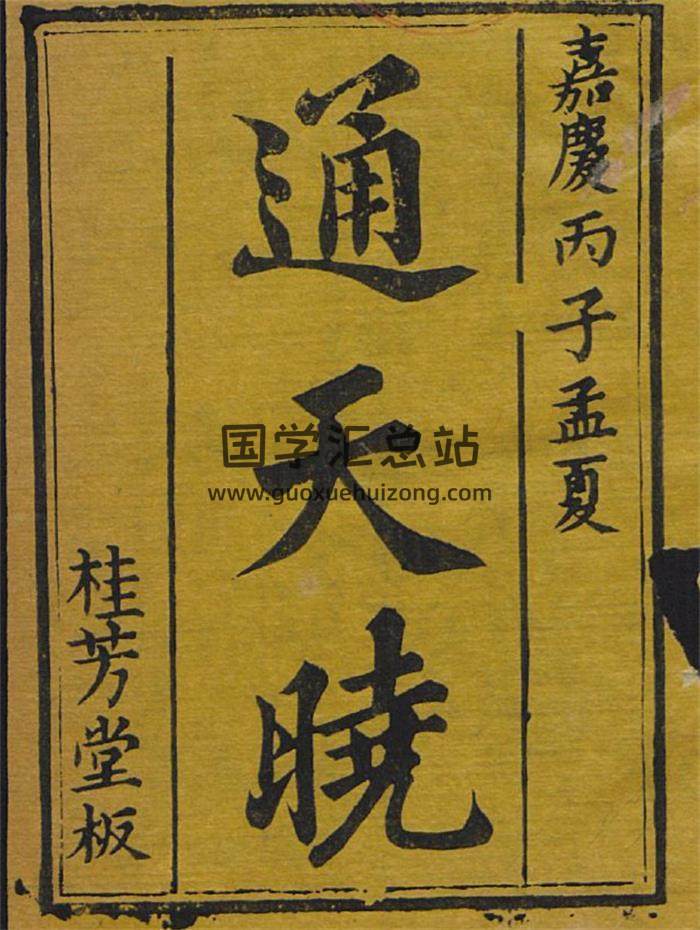 嘉慶丙子孟夏
通天曉
桂芳堂板
国学汇总站
www.guoxuehuizong.com